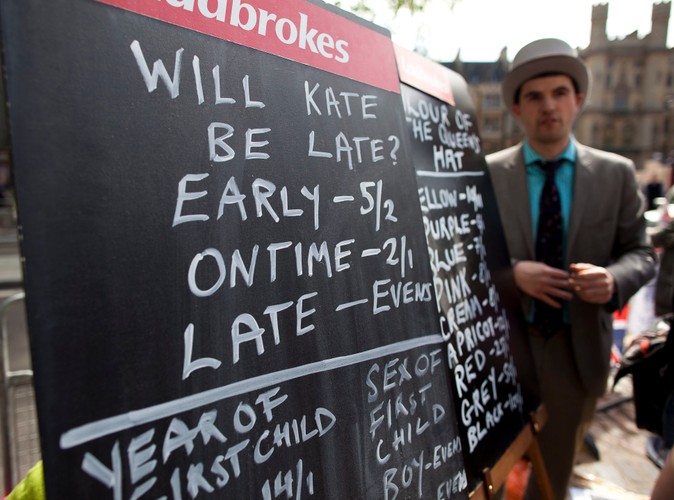 adbrokes
WILL KATE
BE LATE?
EARLY - 5/2
ON TIME - 2/1
LATE - EVENS
YEAR OF
FIRST CHILD
14/1
SEX OF
FIRST
CHILD
BOY - EVENS
EVENS
LOUR OF
HE QUEEN'S
HAT
ELLOW -
PURPLE -
LUE -
PINK -
CREAM -
APRICOT -
RED -
GREY -
BLACK -